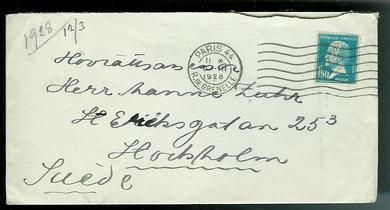 1928 12/3
PARIS 44
11 *
1928
R. DE GRENELLE
REPUBLIQUE FRANÇAISE
1F50
Herr Hanne
S:t Eriksgatan 25³
Stockholm
Suède